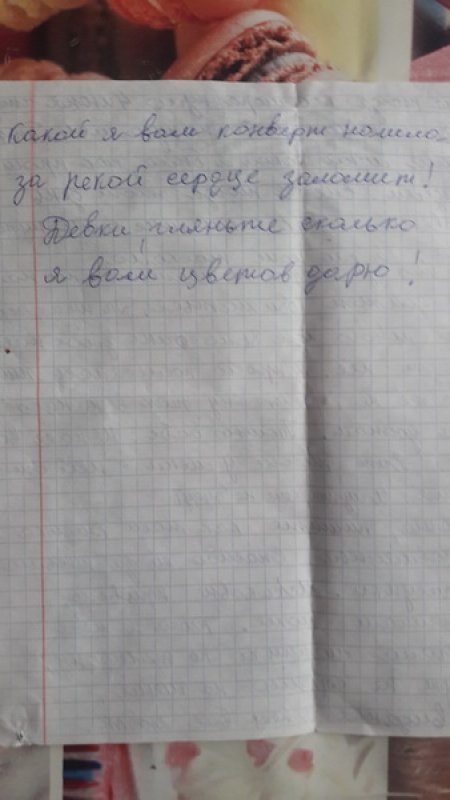 Какой я вам конверт
за рекой сердце заломит!
Девки, гляньте сколько
я вам цветов дарю!